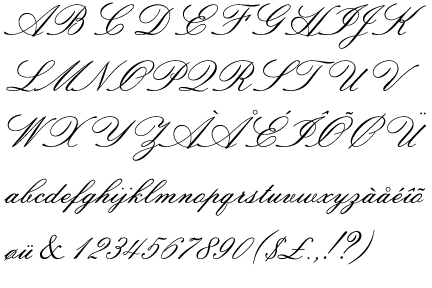 ABCDEFGHIJK
LMNOPQRSTUV
WXYZÀÅÉÎÕØÜ
abcdefghijklmnopqrstuvwxyzàåéîõ
øü&1234567890($£.,!?)